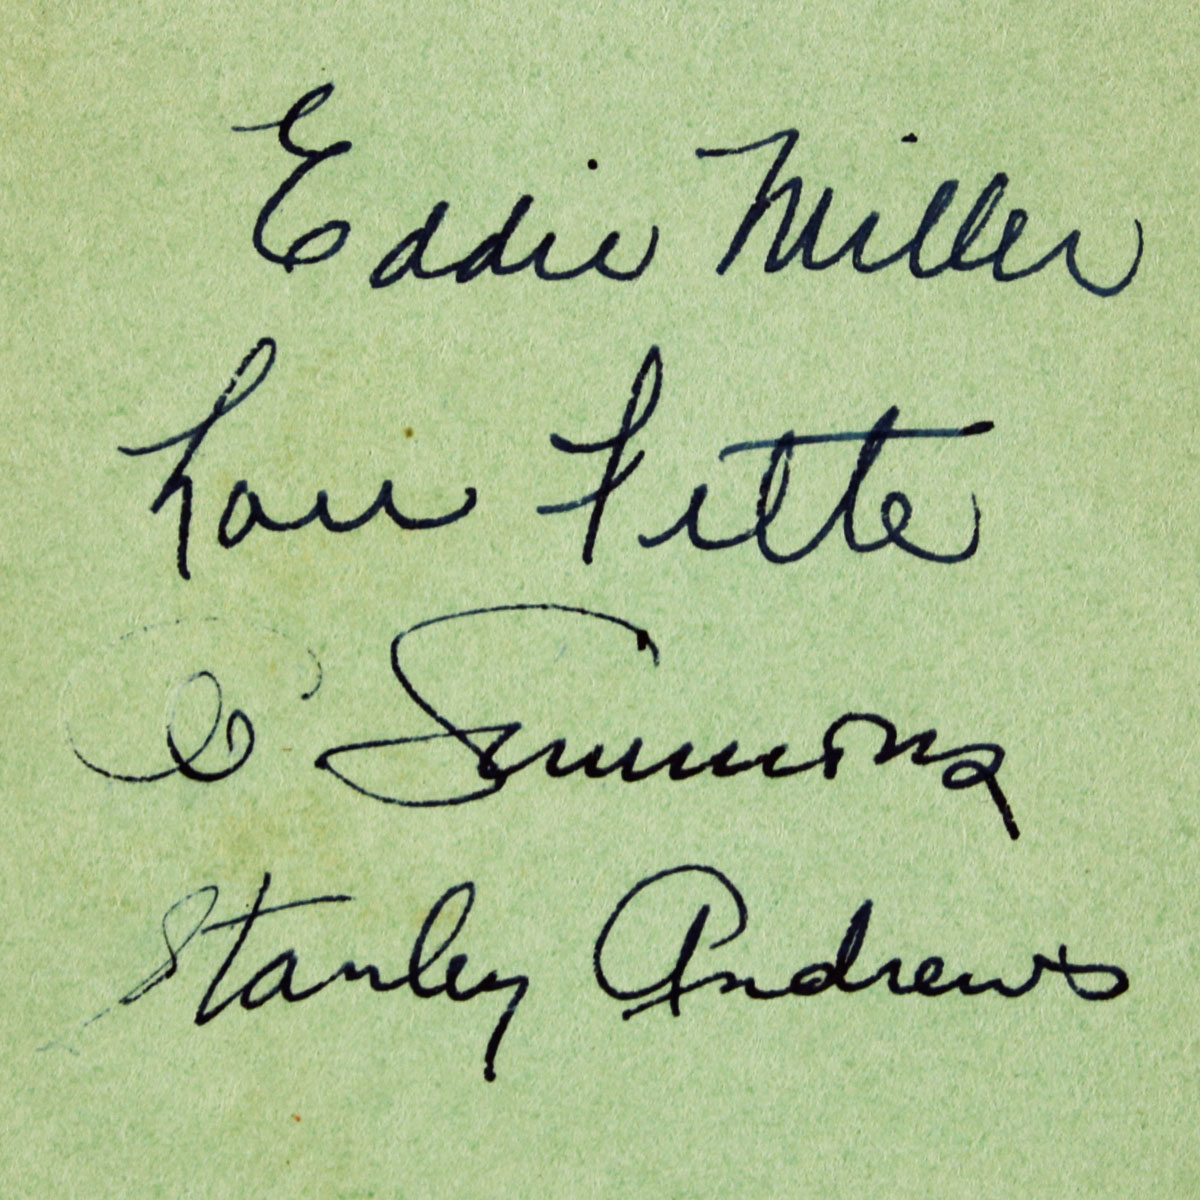 Eddie Miller
Lou Fette
Al Simmons
Stanley Andrews